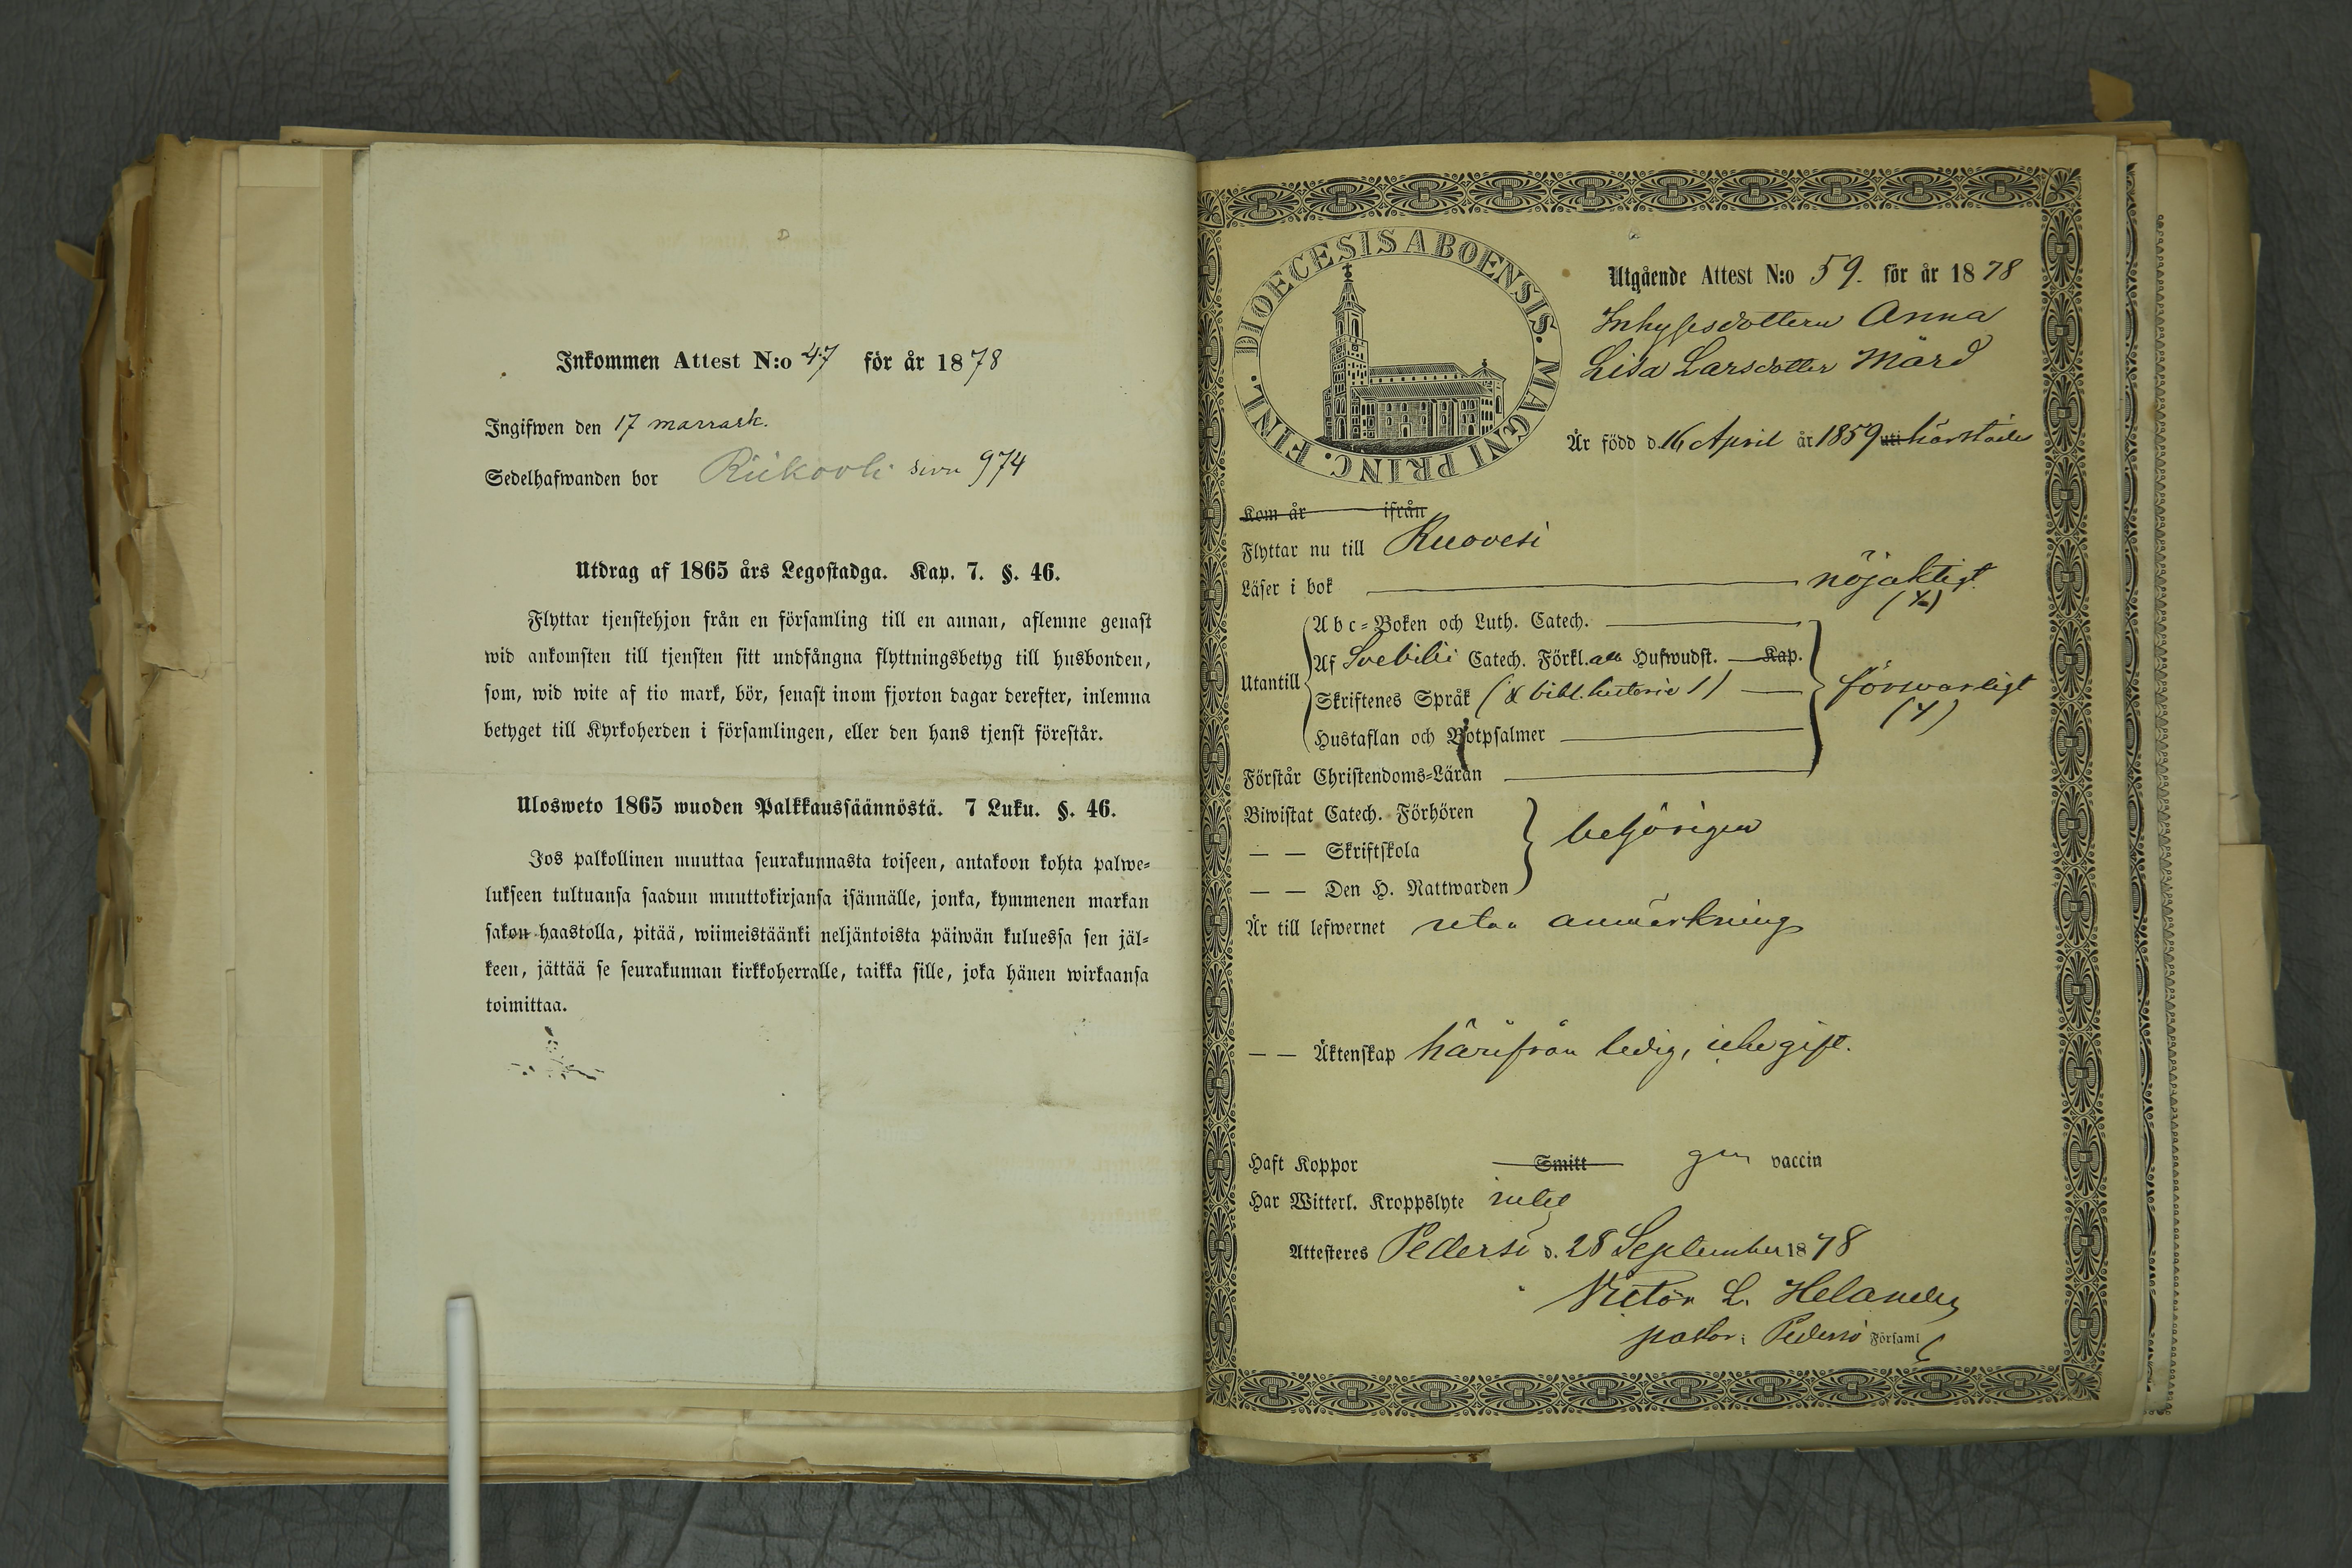 Inkommen Attest N:o 47 för år 1878
Ingifwen den 17 marrask.
Sedelhafwanden bor Riikovli sivu 974
Utdrag af 1865 års Legostadga. Kap. 7. §. 46.
Flyttar tjenstehjon från en församling till en annan, aflemne genast
wid ankomsten till tjensten sitt undfångna flyttningsbetyg till husbonden,
som, wid wite af tio mark, bör, senast inom fjorton dagar derefter, inlemna
betyget till Kyrkoherden i församlingen, eller den hans tjenst förestår.
Ulosweto 1865 wuoden Palkkaussäännöstä. 7 Luku. §. 46.
Jos palkollinen muuttaa seurakunnasta toiseen, antakoon kohta palwe-
lukseen tultuansa saadun muuttokirjansa isännälle, jonka, kymmenen markan
sakon haastolla, pitää, wiimeistäänki neljäntoista päiwän kuluessa sen jäl-
keen, jättää se seurakunnan kirkkoherralle, taikka sille, joka hänen wirkaansa
toimittaa.
DIOECESIS ABOENSIS. MAGNI PRINC. FINL.
Utgående Attest N:o 59. för år 1878
Inhysesdottern Anna
Lisa Larsdotter Mård
Är född d. 16 April år 1859 uti härstädes
Kom år ifrån
Flyttar nu till Ruovesi
Läser i bok nöjaktigt
Abc-Boken och Luth. Catech.
Utantill Af Svebilii Catech. Förkl. alla Hufwudst. Kap.
Skriftenes Språk (& bibl. historie) försvarligt
Hustaflan och Botpsalmer
Förstår Christendoms-Läran
Biwistat Catech. Förhören
— — Skriftskola behörigen
— — Den H. Nattwarden
Är till lefwernet utan anmärkning
— — Äktenskap härifrån ledig, icke gift.
Haft Koppor Smitt gm vaccin
Har Witterl. Kroppslyte intet
Attesteres Pedersö d. 28 September 1878
Victor L. Helander
pastor i Pedersö Församl